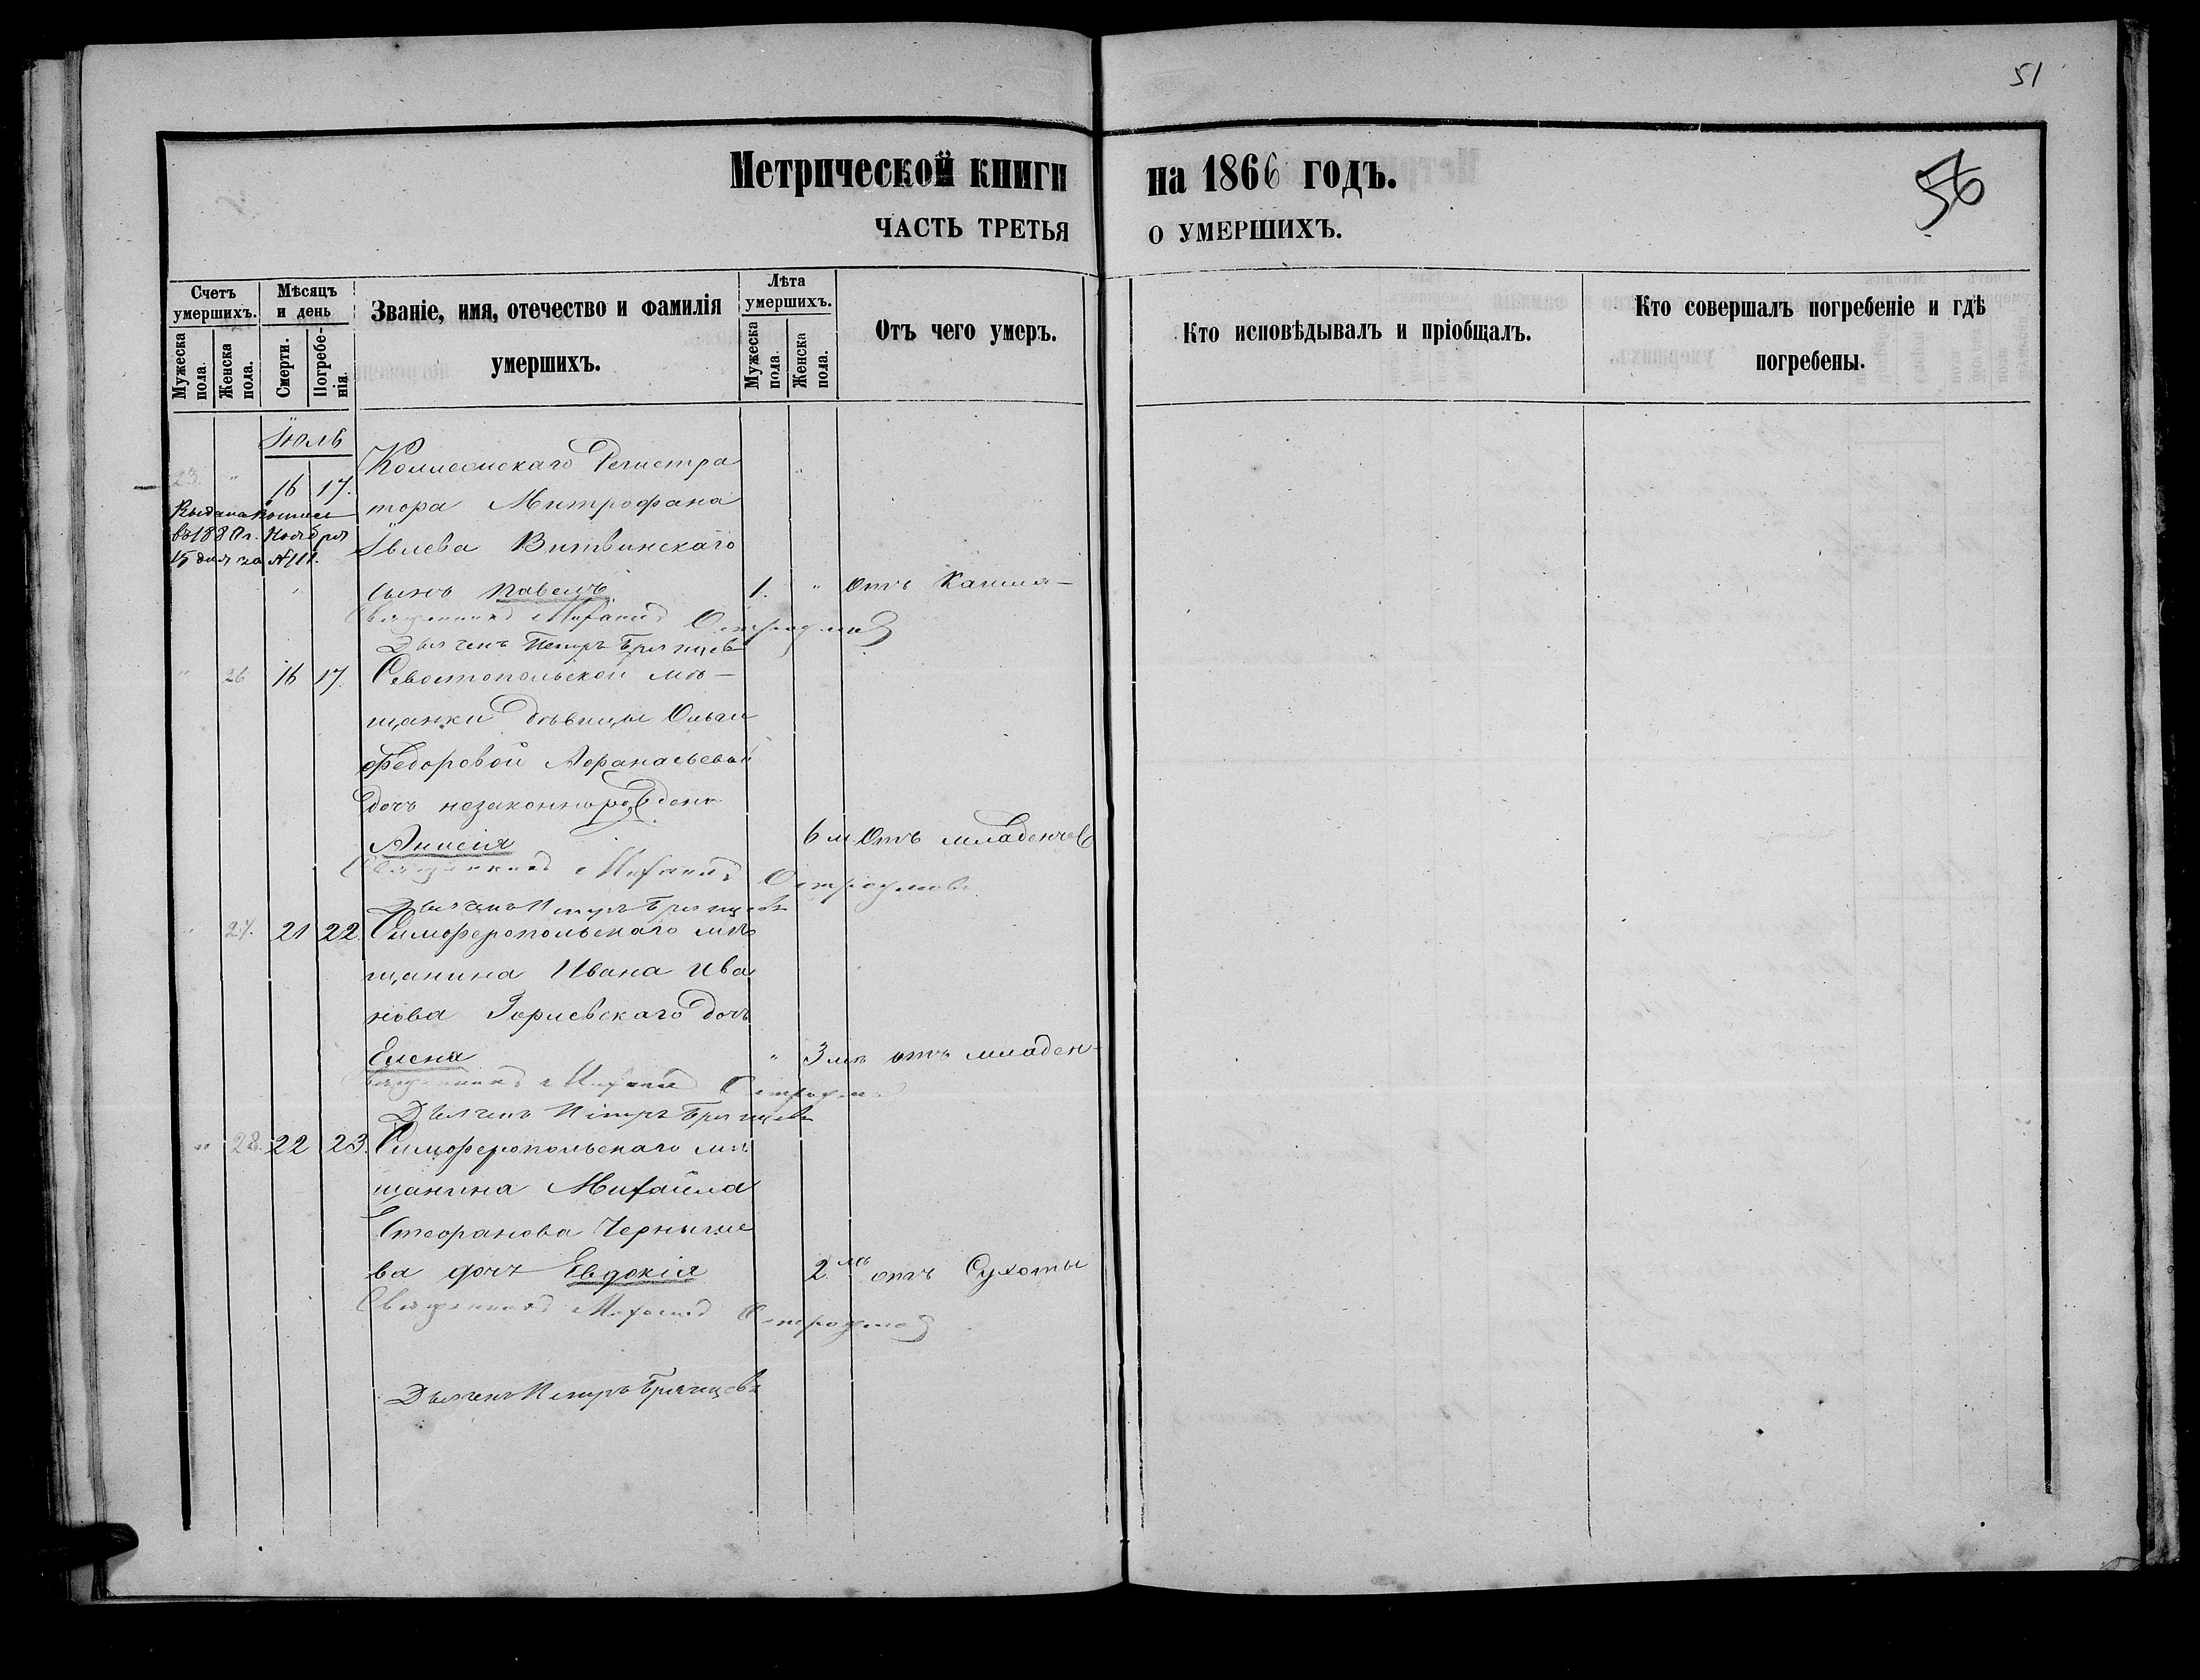 51
Метрической книги на 1866 годъ.
56
ЧАСТЬ ТРЕТЬЯ О УМЕРШИХЪ.
Счетъ умершихъ.
Мужеска пола.
Женска пола.
Мѣсяцъ и день
Смерти.
Погребенія.
Званіе, имя, отечество и фамилія
умершихъ.
Лѣта умершихъ.
Мужеска пола.
Женска пола.
Отъ чего умеръ.
Кто исповѣдывалъ и пріобщалъ.
Кто совершалъ погребеніе и гдѣ
погребены.
Іюль
23. " 16 17. Коллежскаго Регистра
тора Митрофана
Выдана
въ 1880 г. Ноября
15 дня за №111.
Івлева Витвинскаго
сынъ Павелъ 1. " Отъ Кашля
Священникъ Михаилъ
Дьячекъ Петръ Брянцевъ
" 26 16 17. Севастопольской мѣ-
щанки дѣвицы Ольги
Федоровой Афанасьевой
дочь незаконнорожден
Анисія 6 м. Отъ младенчес
Священникъ Михаилъ
Дьячекъ Петръ Брянцевъ
" 27. 21 22. Симферопольскаго мѣ
щанина Ивана Ива
нова Зориевскаго дочь
Елена " 3 мѣ отъ младен-
Священникъ Михаилъ
Дьячекъ Петръ Брянцевъ
" 28. 22 23. Симферопольскаго мѣ
щанина Михаила
Стефанова Черныше
ва дочь Евдокія 2. мѣ отъ Сухоты
Священникъ Михаилъ
Дьячекъ Петръ Брянцевъ